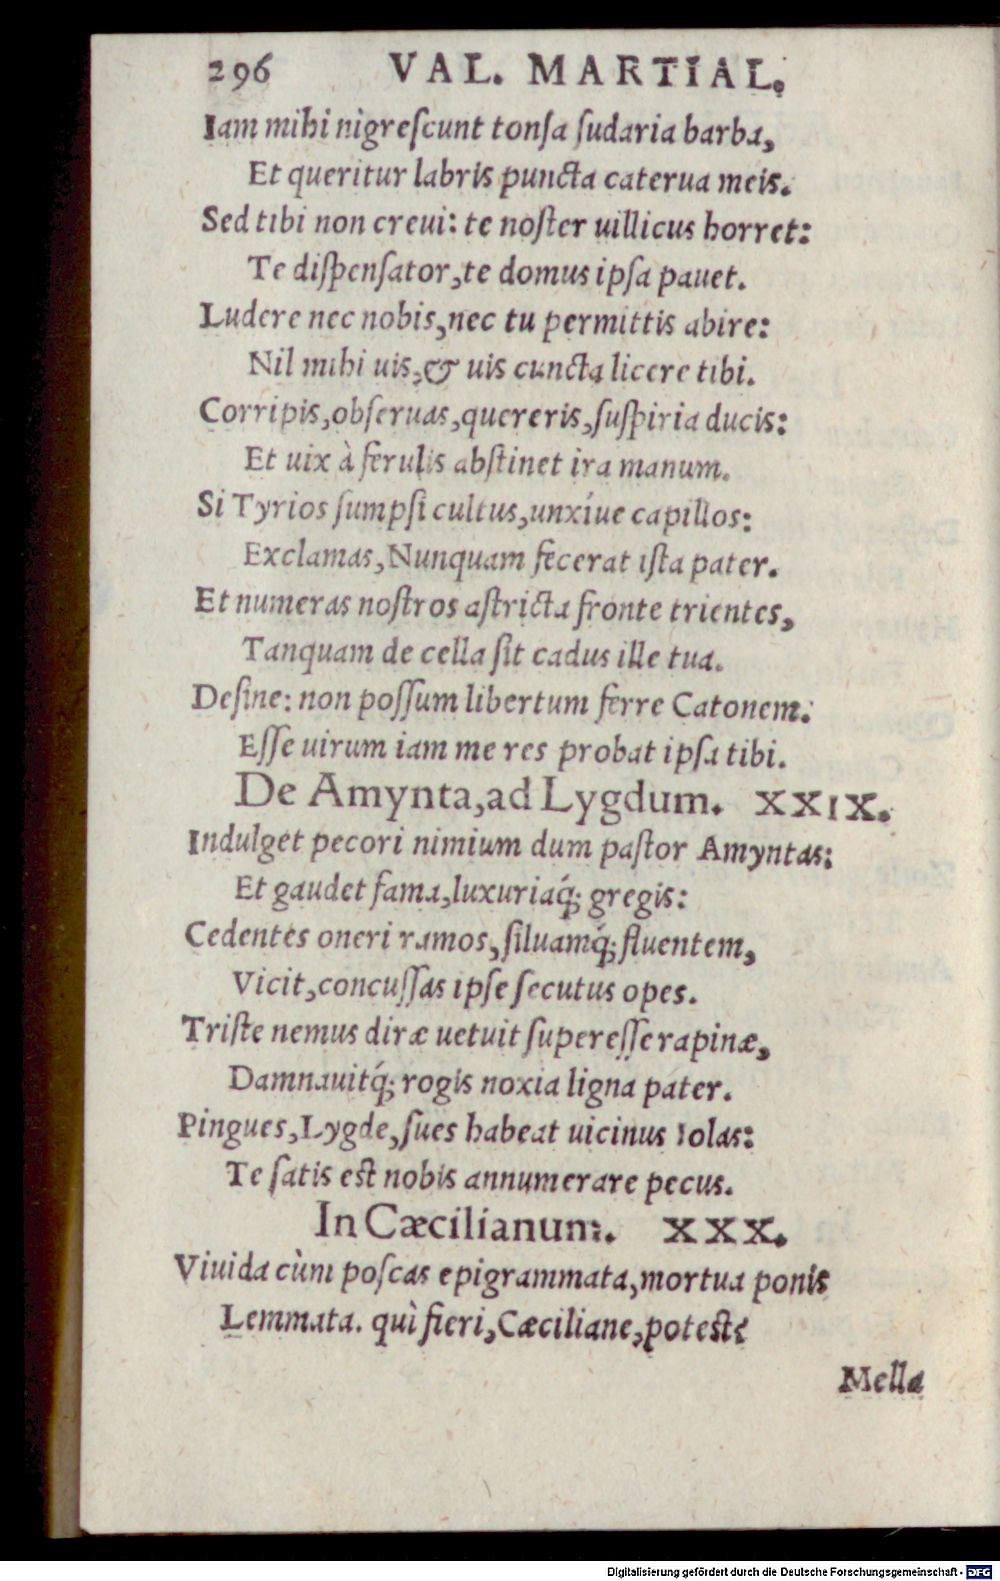 296 VAL. MARTIAL.
Iam mihi nigreſcunt tonſa ſudaria barba,
Et queritur labris puncta caterua meis.
Sed tibi non creui: te noſter uillicus horret:
Te diſpenſator, te domus ipſa pauet.
Ludere nec nobis, nec tu permittis abire:
Nil mihi uis, & uis cuncta licere tibi.
Corripis, obſeruas, quereris, ſuſpiria ducis:
Et uix à ferulis abſtinet ira manum.
Si Tyrios ſumpſi cultus, unxíue capillos:
Exclamas, Nunquam fecerat iſta pater.
Et numeras noſtros aſtricta fronte trientes,
Tanquam de cella ſit cadus ille tua.
Deſine: non poſſum libertum ferre Catonem.
Eſſe uirum iam me res probat ipſa tibi.
De Amynta, ad Lygdum. XXIX.
Indulget pecori nimium dum paſtor Amyntas:
Et gaudet fama, luxuriaq́; gregis:
Cedentes oneri ramos, ſiluamq́; fluentem,
Vicit, concuſſas ipſe ſecutus opes.
Triſte nemus diræ uetuit ſupereſſe rapinæ,
Damnauitq́; rogis noxia ligna pater.
Pingues, Lygde, ſues habeat uicinus Iolas:
Te ſatis eſt nobis annumerare pecus.
In Cæcilianum. XXX.
Viuida cùm poſcas epigrammata, mortua ponis
Lemmata. quì fieri, Cæciliane, poteſt?
Mella
Digitalisierung gefördert durch die Deutsche Forschungsgemeinschaft - DFG